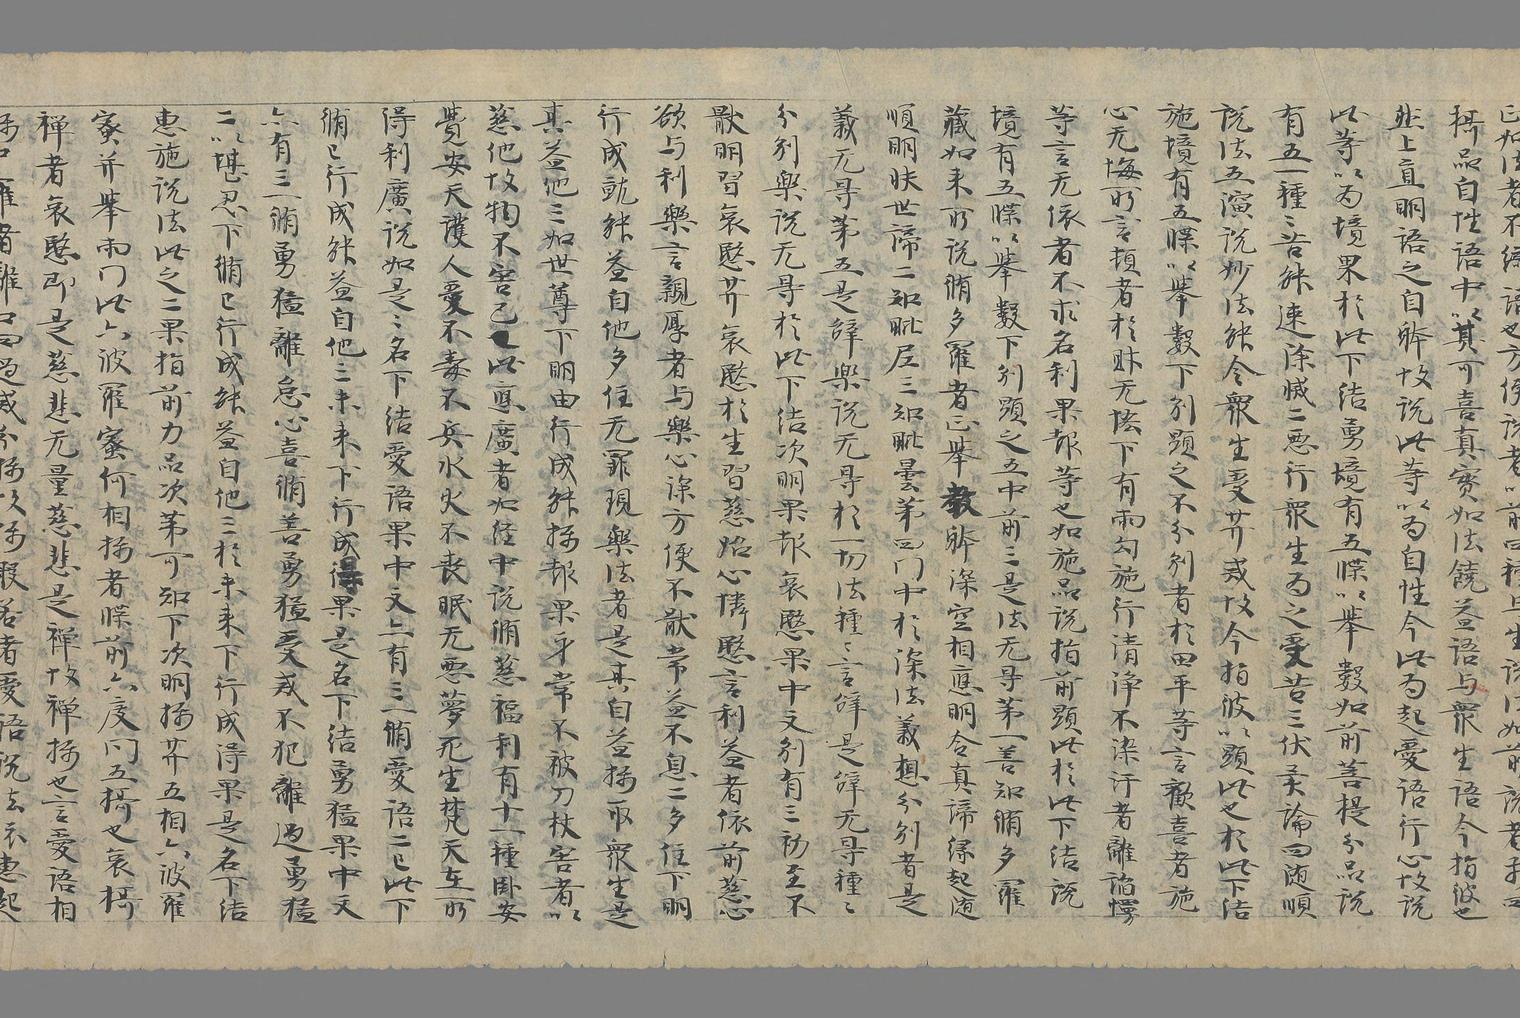 攝品自性語中以其可喜真實如法饒益語与眾生語今指彼也
然上直明語之自躰故說此等以為自性今此為起愛語行心故說
此等以為境果於此下結勇境有五牒以舉數如前菩提分品說
有五一種〻苦能速除滅二惡行眾生為之受苦三伏異論四隨順
說法五演說妙法能令眾生受菩戒故今指彼以顯此也於此下結
施境有五牒以舉數下別顯之不分別者於田平等言歡喜者施
心无悔所言頓者於財无恡下有兩句施行清淨不染汙者離諂慢
等言无依者不求名利果報等也如施品說指前顯此於此下結說
境有五牒以舉數下別顯之五中前三是法无㝵第一善知脩多羅
藏如来所說脩多羅者正舉教躰深空相應明合真諦緣起随
順明扶世諦二知毗尼三知毗曇第四門中於深法義想分別者是
義无㝵第五是辞樂說无㝵於一切法種〻言辞是辞无㝵種〻
分別樂說无㝵於此下結次明果報哀愍果中文別有三初至不
猒明習哀愍菩哀愍於生習慈始心憐愍言利益者依前慈心
欲与利樂言親厚者与樂心深方便不猒常益不息二多住下明
行成就能益自他多住无罪現樂法者是其自益攝取眾生是
其益他三如世尊下明由行成能攝報果身常不被刀杖害者以
慈他故物不害己此應廣者如經中說脩慈福利有十一種卧安
覺安天護人愛不毒不兵水火不丧眠无惡夢死生梵天在所
得利廣說如是〻名下結愛語果中文亦有三一脩愛語二已此下
脩已行成能益自他三未来下行成得果是名下結勇猛果中文
亦有三一脩勇猛離怠心喜脩善勇猛受戒不犯離過勇猛
二以堪忍下脩已行成能益自他三於未来下行成得果是名下結
惠施說法此之二果指前力品次第可知下次明攝菩五相六波羅
蜜并舉兩門此六波羅蜜何相攝者牒前六度問五攝也哀攝
禅者哀愍即是慈悲无量慈悲是禅故禅攝也言愛語相